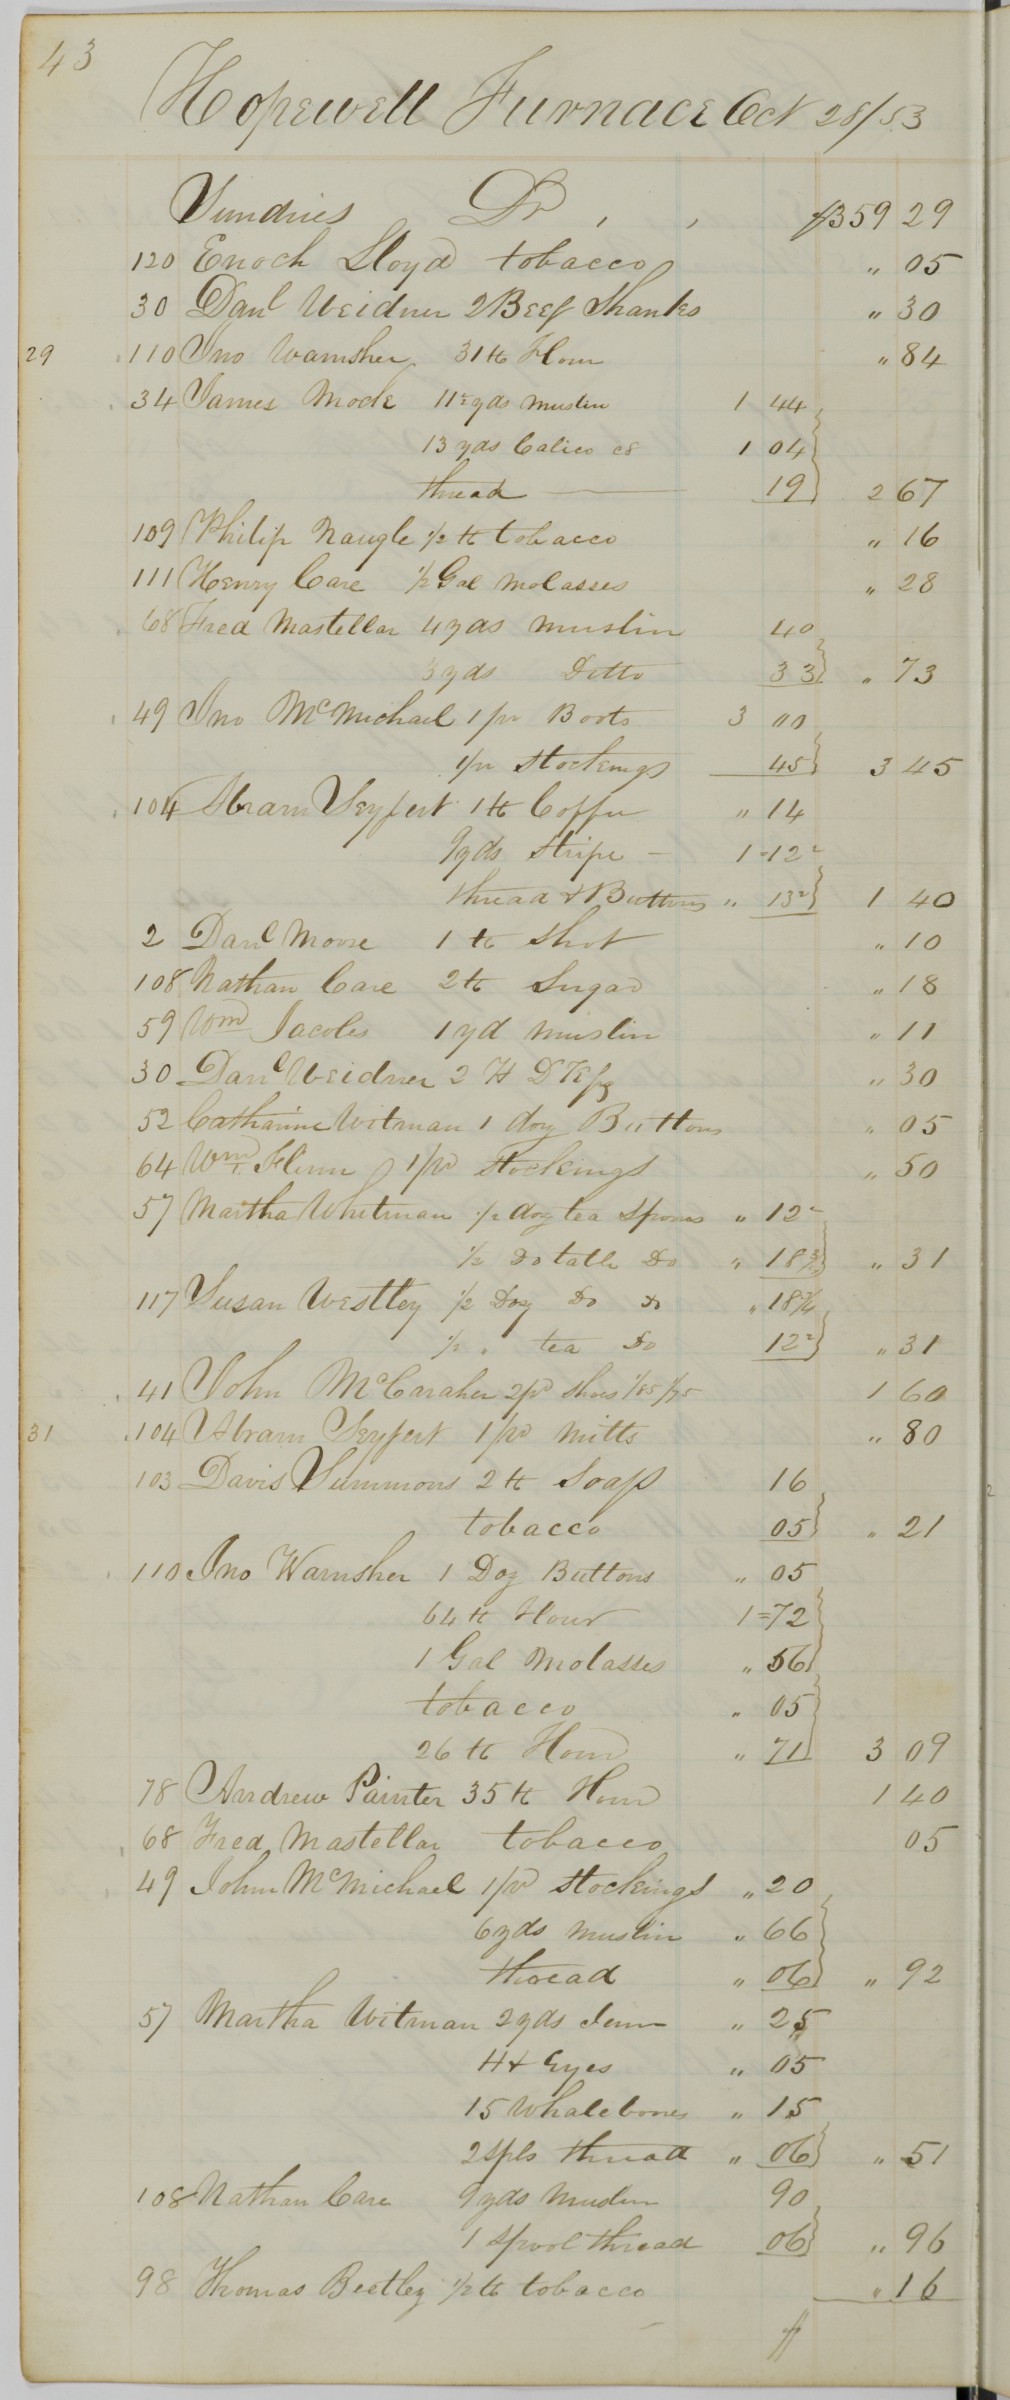 43
Hopewell Furnace Oct 28/53
Sundries Dr , , $359 29
120 Enoch Lloyd tobacco " 05
30 Danl Weidner 2 Beef Shanks " 30
29 110 Jno Warnsher 31 ℔ Flour " 84
34 James Mock 11 yds muslin 1 44
13 yds Calico c8 1 04
thread 19 2 67
109 Philip Naugle 1/2 ℔ tobacco " 16
111 Henry Care 1/2 Gal Molasses " 28
68 Fred Mastellar 4 yds muslin 40
3 yds Ditto 33 " 73
49 Jno McMichael 1 pr Boots 3 00
1 pr Stockings 45 3 45
104 Abram Seyfert 1 ℔ Coffee " 14
9 yds Stripe - 1=12 2
thread & Buttons " 13 2 1 40
2 Danl Moore 1 ℔ Shot " 10
108 Nathan Care 2 ℔ Sugar " 18
59 Wm Jacobs 1 yd muslin " 11
30 Danl Weidner 2 H DKfs " 30
52 Catharine Witman 1 doz Buttons " 05
64 Wm F. Flinn 1 pr Stockings " 50
57 Martha Whitman 1/2 doz tea Spoons " 12 2
1/2 Do table Do " 18 3/4 " 31
117 Susan Westley 1/2 Doz Do Do " 18 3/4
1/2 " tea Do 12 2 " 31
41 John McCaraher 2 pr Shoes 1/85 1/75 1 60
31 104 Abram Seyfert 1 pr Mitts " 80
103 Davis Summons 2 ℔ Soap 16
tobacco 05 " 21
110 Jno Warnsher 1 Doz Buttons " 05
64 ℔ Flour 1=72
1 Gal Molasses " 56
tobacco " 05
26 ℔ Flour " 71 3 09
78 Andrew Painter 35 ℔ Flour 1 40
68 Fred Mastellar tobacco 05
49 John McMichael 1 pr Stockings " 20
6 yds muslin " 66
thread " 06 " 92
57 Martha Witman 2 yds Jean " 25
H & Eyes " 05
15 Whalebones " 15
2 Spls thread " 06 " 51
108 Nathan Care 9 yds Muslin 90
1 Spool thread 06 " 96
98 Thomas Beetley 1/2 ℔ tobacco " 16
$